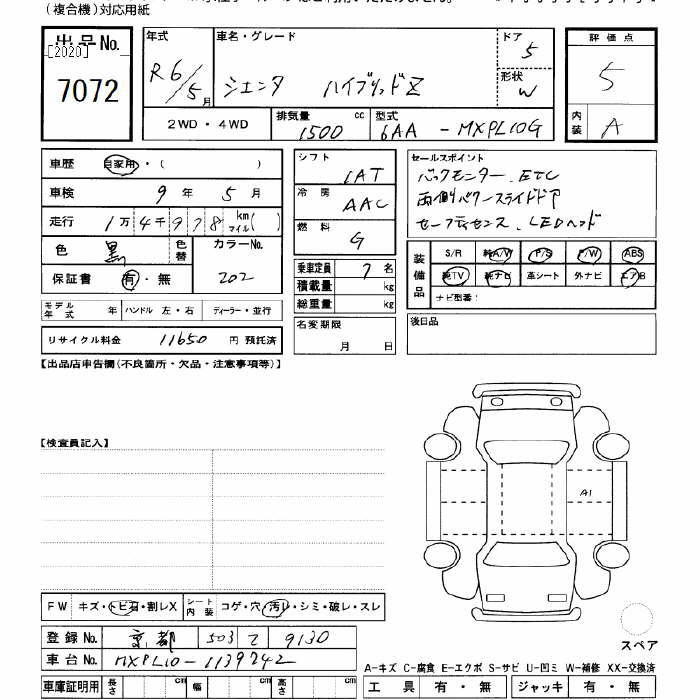 (複合機)対応用紙
出品No.
[2020]
7072
年式 R6/5月
車名・グレード シエンタ ハイブリッドZ
ドア 5
形状 W
評価点 5
内装 A
2WD・4WD
排気量 1500 cc
型式 6AA-MXPL10G
車歴 自家用・( )
車検 9年5月
走行 1万4千978km マイル( )
色 黒 色替 カラーNo. 202
保証書 有・無
モデル年式 年 ハンドル 左・右 ディーラー・並行
リサイクル料金 11650 円 預託済
シフト IAT
冷房 AAC
燃料 G
乗車定員 7名
積載量 kg
総重量 kg
名変期限 月 日
セールスポイント
バックモニター.ETC
両側パワースライドドア
セーフティセンス.LEDヘッド
装備品 S/R 純A/W P/S P/W ABS
純TV 純ナビ 革シート 外ナビ エアB
ナビ型番!
後日品
【出品店申告欄(不良箇所・欠品・注意事項等)】
【検査員記入】
A1
FW キズ・トビ石・割レX シート内装 コゲ・穴・汚レ・シミ・破レ・スレ
登録No. 京都 503 て 9130
車台No. MXPL10-1139242
車庫証明用 長さ cm 幅 cm 高さ cm
スペア
A-キズ C-腐食 E-エクボ S-サビ U-凹ミ W-補修 XX-交換済
工具 有・無 ジャッキ 有・無